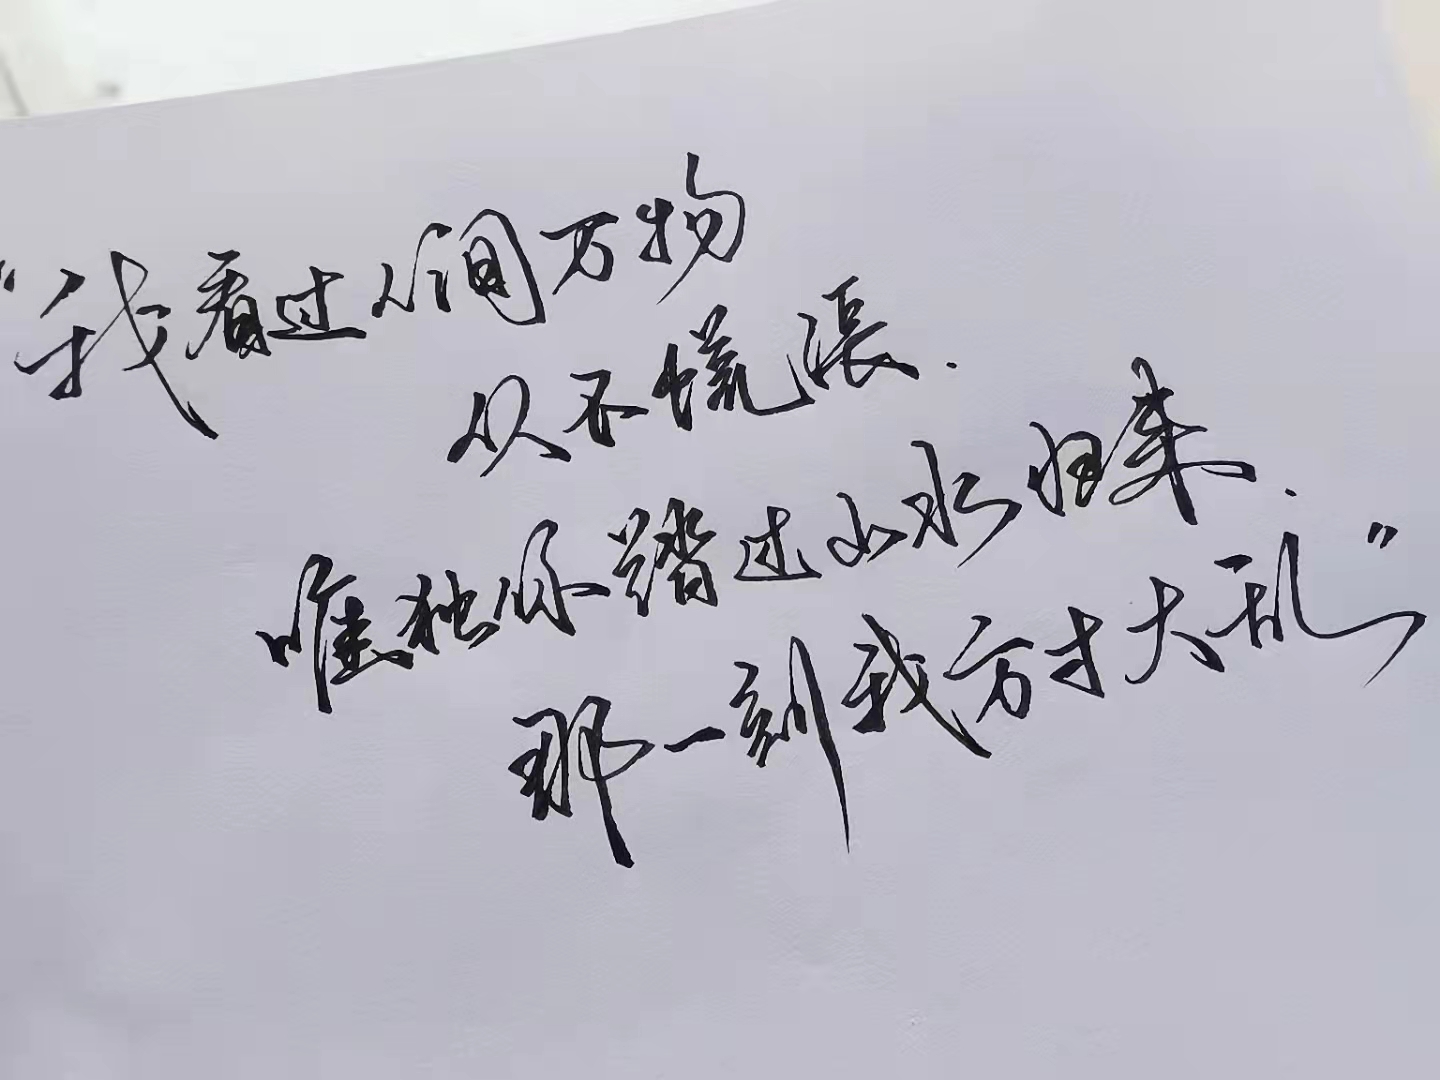 “我看过人间万物
从不慌张.
唯独你踏过山水归来.
那一刻我方才大乱”